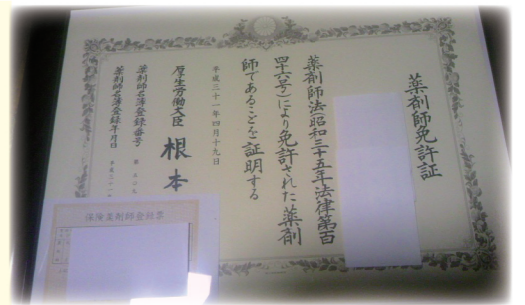 薬剤師免許証
薬剤師法(昭和三十五年法律第百
四十六号)により免許された薬剤
師であることを証明する
平成三十一年四月十九日
厚生労働大臣 根本
薬剤師名簿登録番号 第
薬剤師名簿登録年月日 平成三十一
保険薬剤師登録票